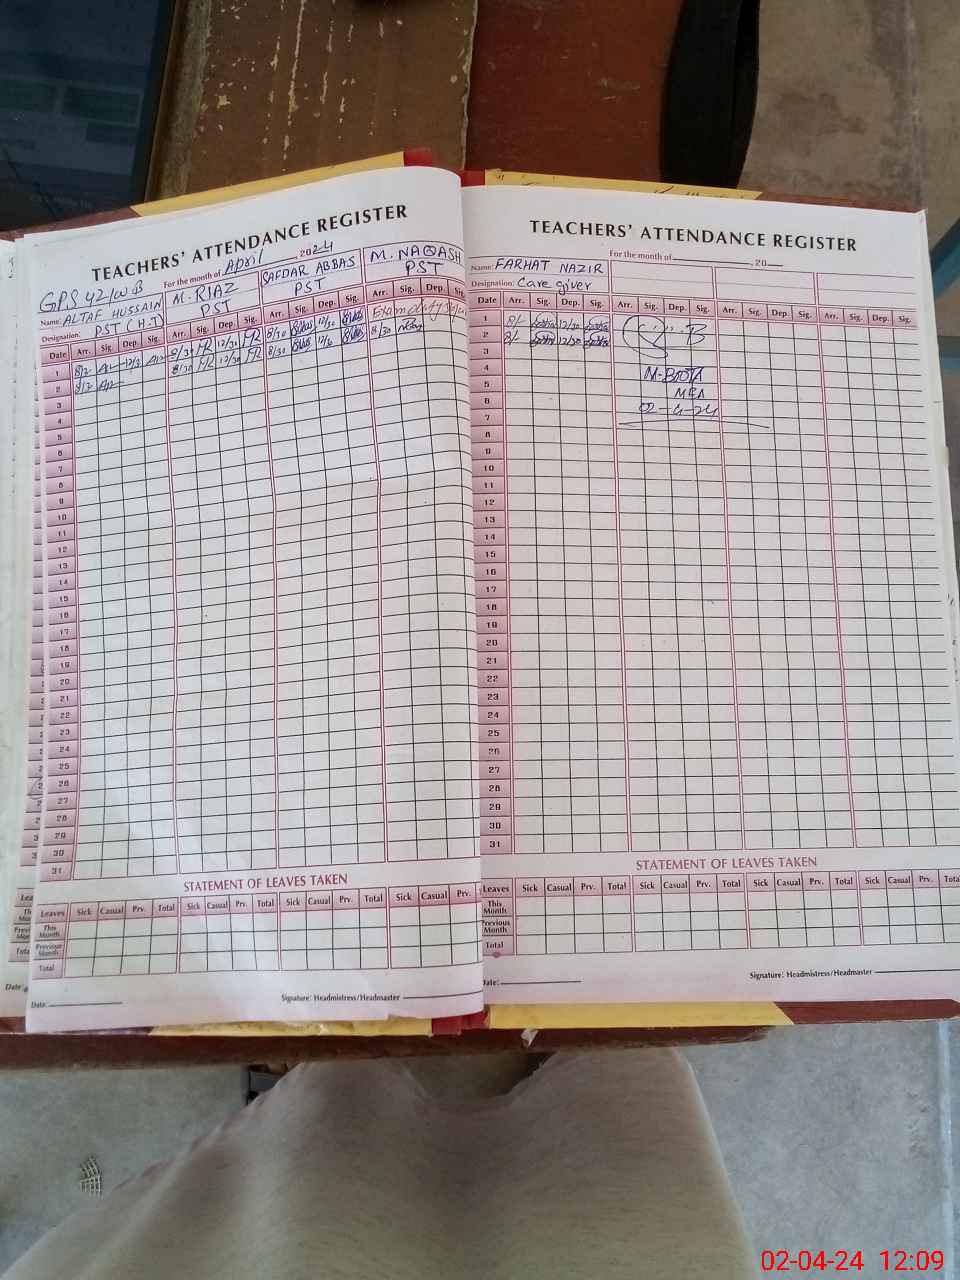 TEACHERS' ATTENDANCE REGISTER
For the month of April, 2024
GPS 42/WB
Name: ALTAF HUSSAIN M. RIAZ SAFDAR ABBAS M. NAQASH
Designation: PST (H.T) PST PST PST
Date Arr. Sig. Dep. Sig. Arr. Sig. Dep. Sig. Arr. Sig. Dep. Sig. Arr. Sig. Dep. Sig.
1 8/30 12/30 8/30 12/30 Exam duty
2 8/30 12/30 8/30 8/30
3
4
5
6
7
8
9
10
11
12
13
14
15
16
17
18
19
20
21
22
23
24
25
26
27
28
29
30
31
STATEMENT OF LEAVES TAKEN
Leaves Sick Casual Prv. Total Sick Casual Prv. Total Sick Casual Prv. Total Sick Casual Prv.
This Month
Previous Month
Total
Date:
Signature: Headmistress/Headmaster
TEACHERS' ATTENDANCE REGISTER
For the month of , 20
Name: FARHAT NAZIR
Designation: Care giver
Date Arr. Sig. Dep. Sig. Arr. Sig. Dep. Sig. Arr. Sig. Dep. Sig. Arr. Sig. Dep. Sig.
1 8/- 12/30
2 8/- 12/30
3
4 M. BOOTA
5 MEA
6 02-4-24
7
8
9
10
11
12
13
14
15
16
17
18
19
20
21
22
23
24
25
26
27
28
29
30
31
STATEMENT OF LEAVES TAKEN
Leaves Sick Casual Prv. Total Sick Casual Prv. Total Sick Casual Prv. Total Sick Casual Prv. Total
This Month
Previous Month
Total
Date:
Signature: Headmistress/Headmaster
02-04-24 12:09